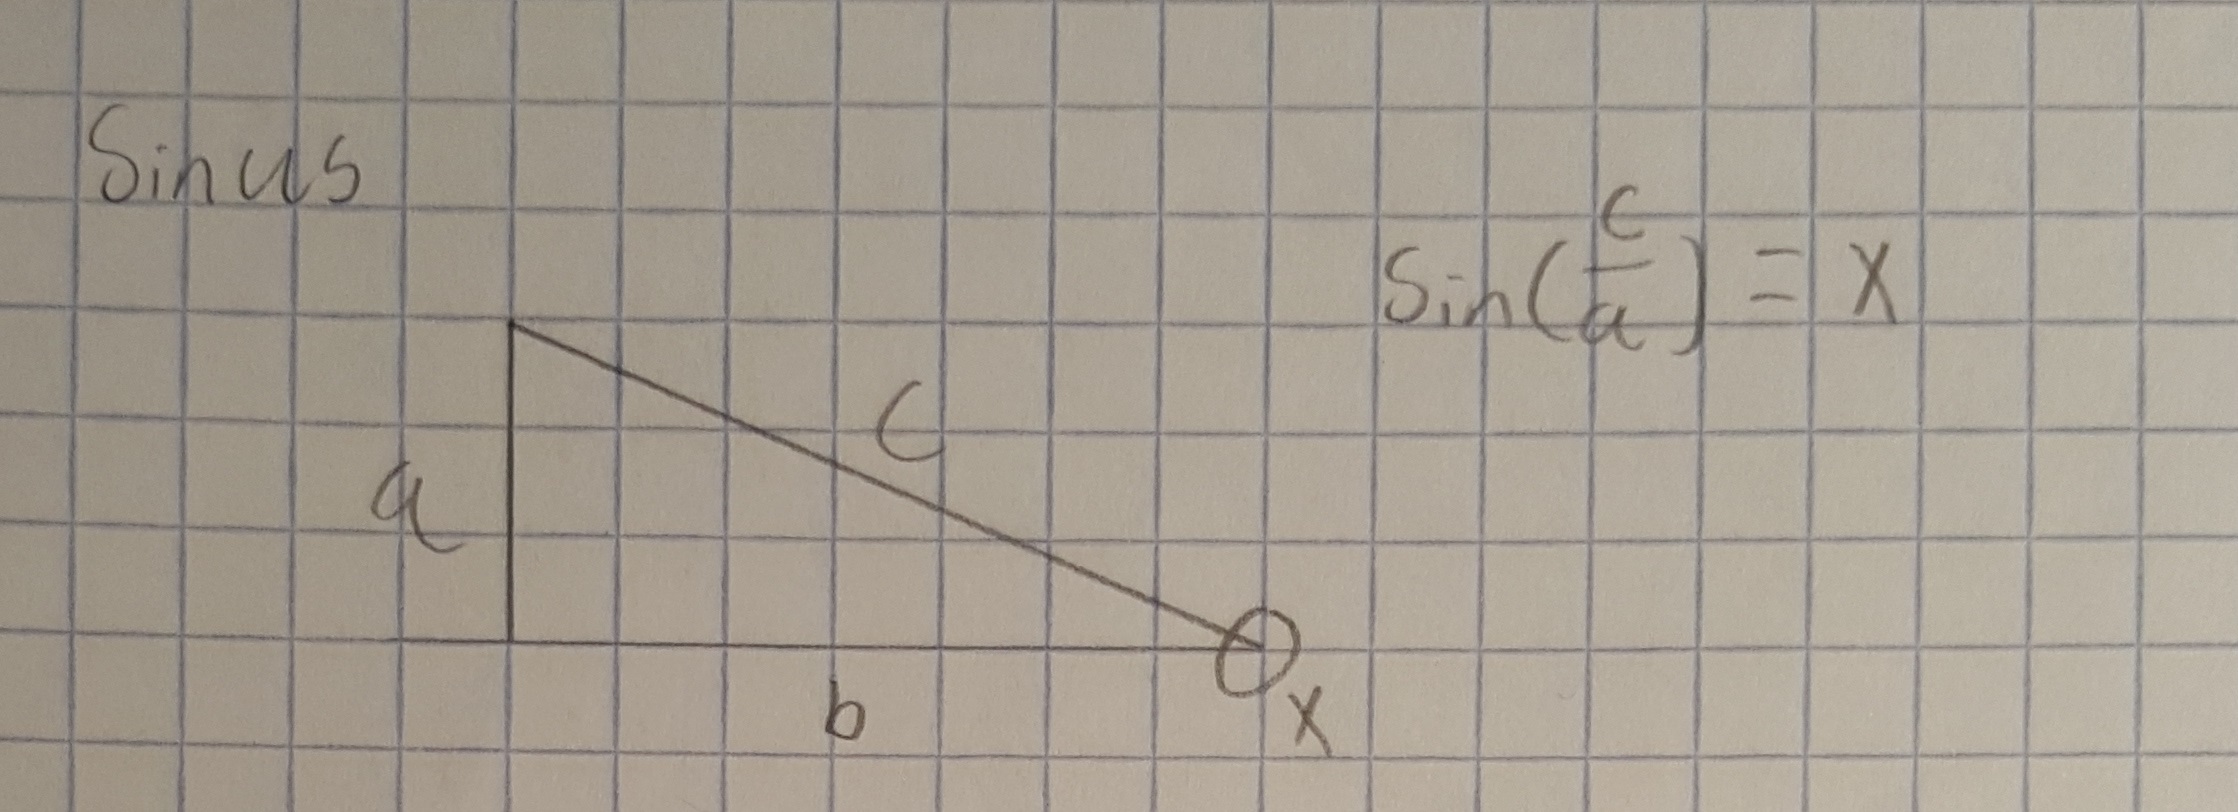 Sinus
Sin(c/a) = x
c
a
b
x